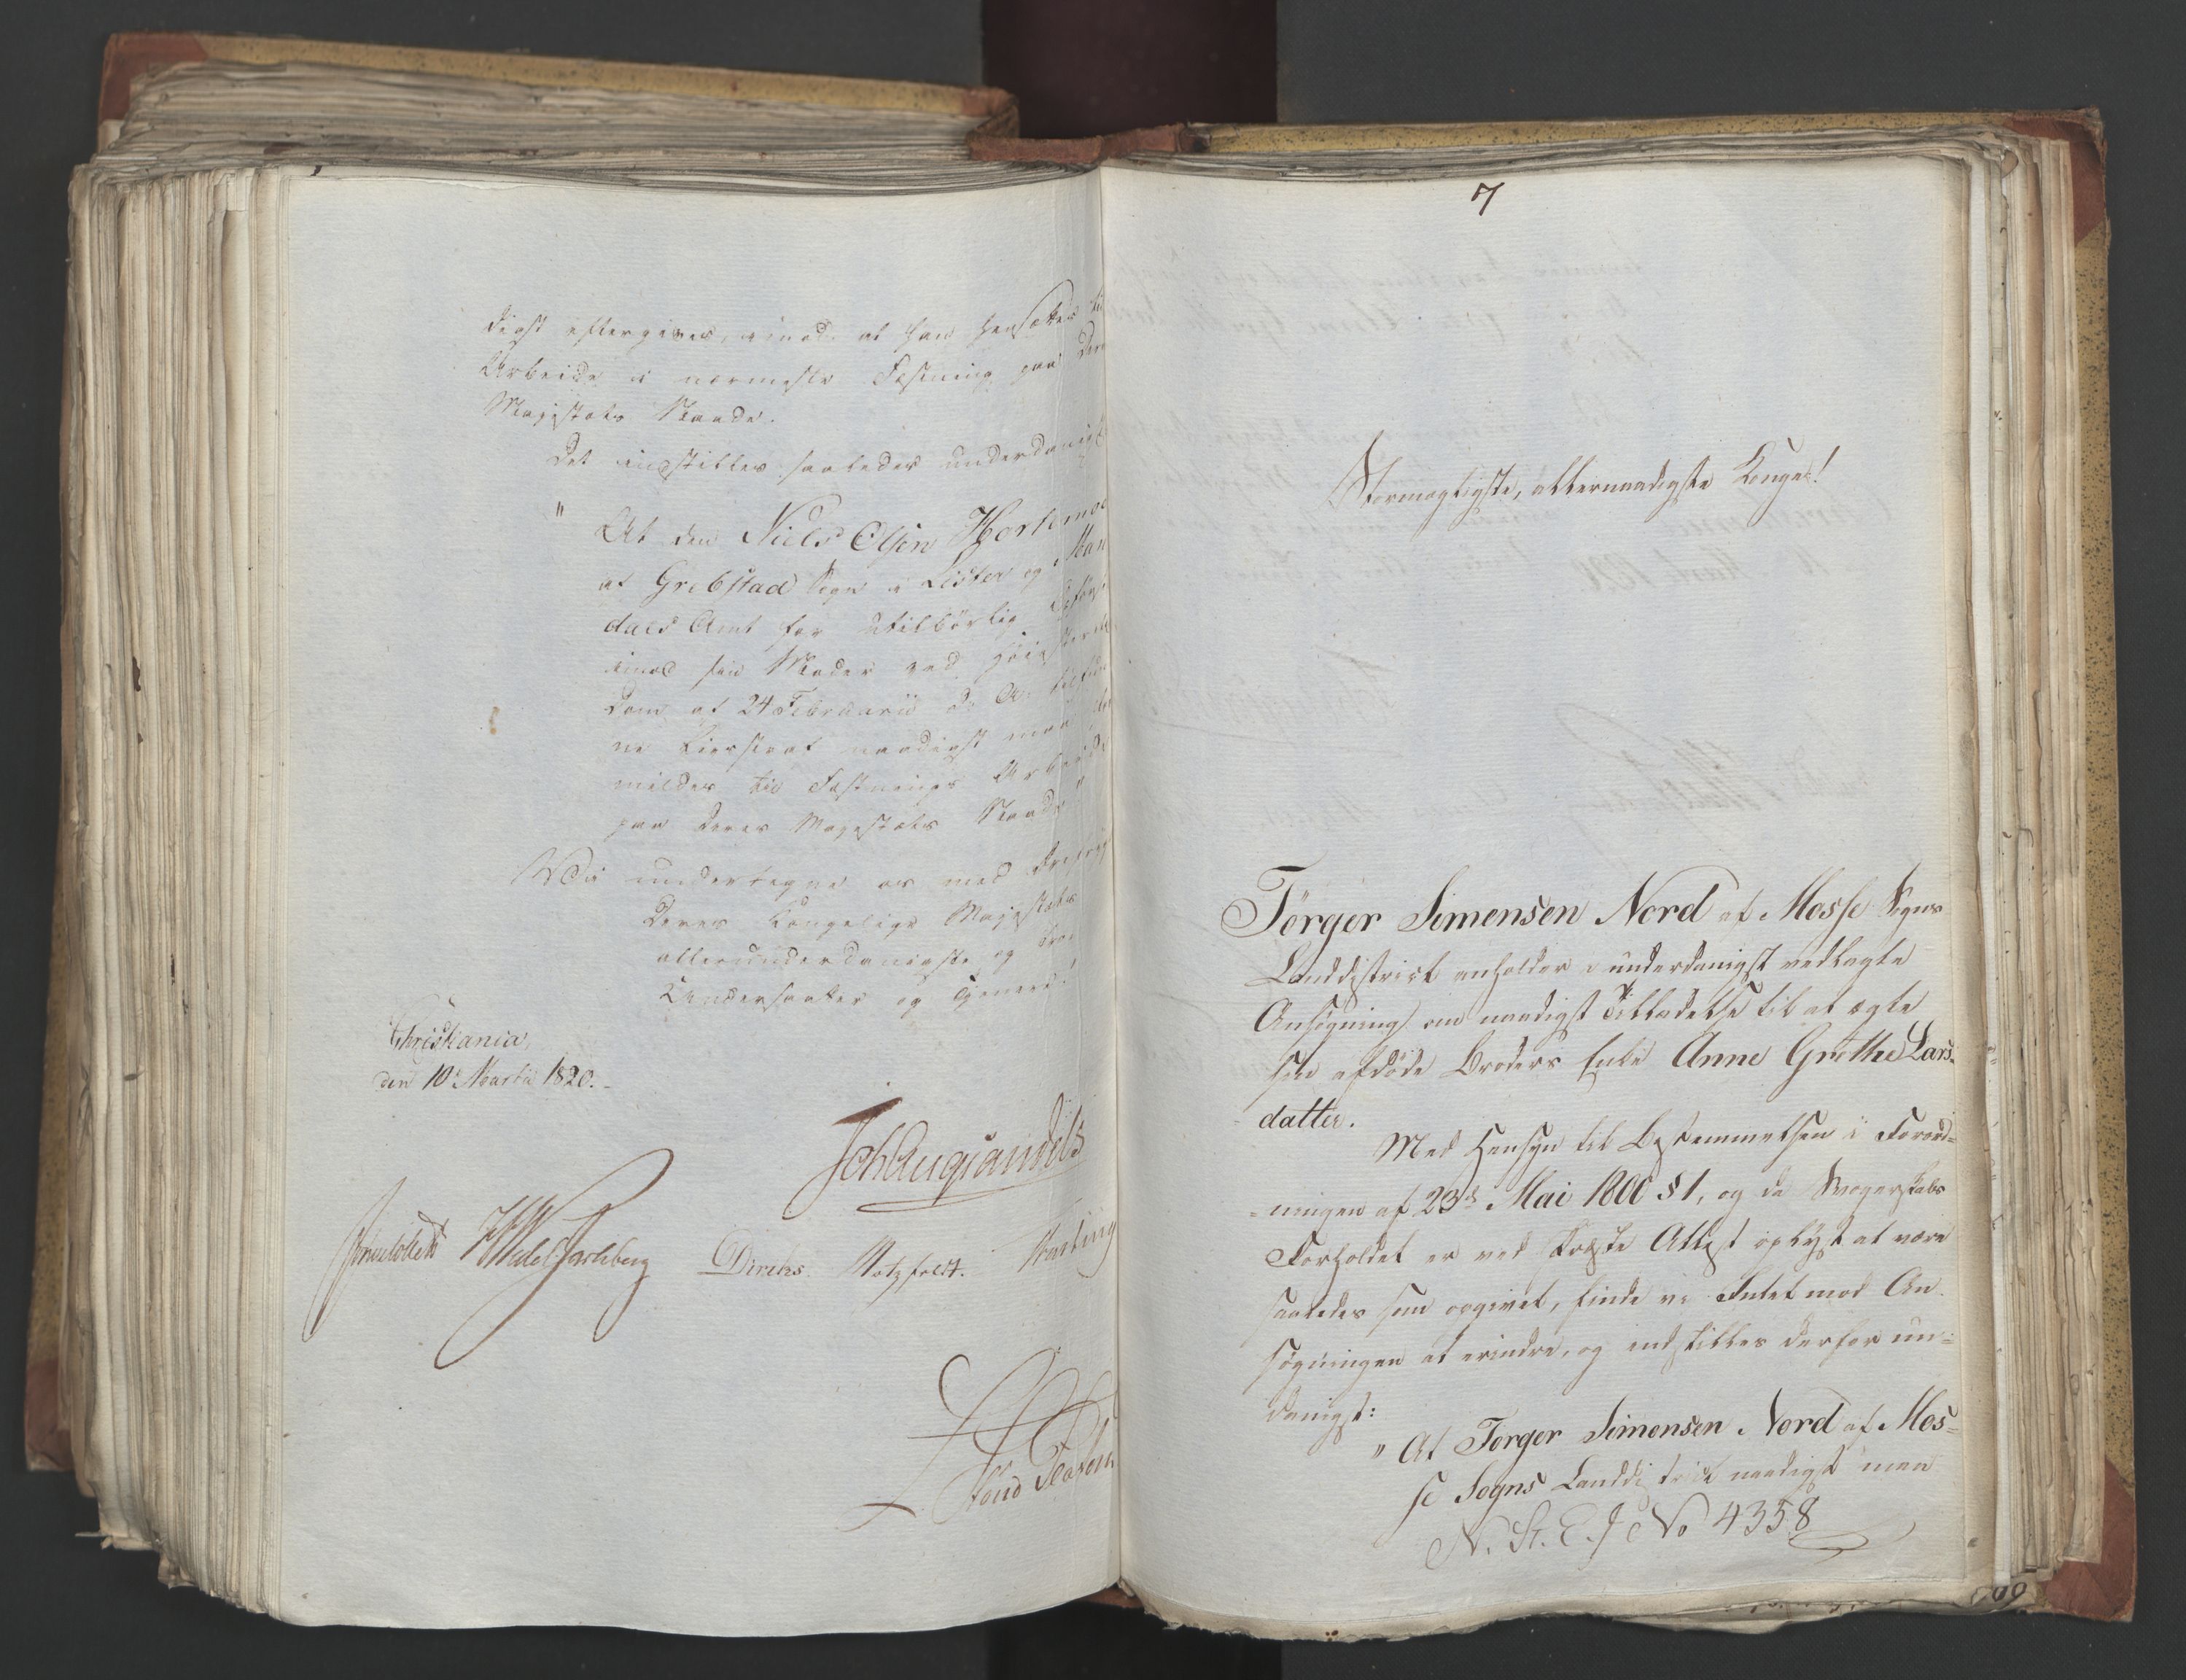 digst eftergives, imod at han hensættes til
Arbeide i nærmeste Fæstning paa Deres
Majestæts Naade.
Det indstilles saaledes underdanigst
" At den Niels Olsen Hortemoe
af Grebstad Sogn i Lister og Man
dals Amt for utilbørlig Opførsel
imod sin Moder ved Høiesterets
Dom af 24 Februarii d: A: tilfund
ne Livsstraf naadigst maa for
mildes til Fæstnings Arbeide
paa Deres Majestæts Naade"
Vi undertegne os med
Deres Kongelige Majestæts
allerunderdanigste og
Undersaatter og Tjenere!
Christiania,
den 10de Martii 1820.
Joh Aug Sandels
Sommerhielm HWedel Jarlsberg Diriks Motzfeldt.
7
Stormægtigste, allernaadigste Konge!
Tørger Simensen Nord af Mosse Sogns
Landdistrict anholder i underdanigst vedlagte
Ansøgning om naadigst Tilladelse til at ægte
sin afdøde Broders Enke Anne Grethe Lars-
datter.
Med Hensyn til Bestemmelsen i Forord=
=ningen af 23de Mai 1800 § 1, og da Svogerskabs
Forholdet er ved Præste Attest oplyst at være
saaledes som opgivet, finde vi Intet mod An-
søgningen at erindre, og indstilles derfor un=
danigst:
" At Tørger Simensen Nord af Mos=
se Sogns Landdistrict naadigst maa
N. St. E. J No 4358